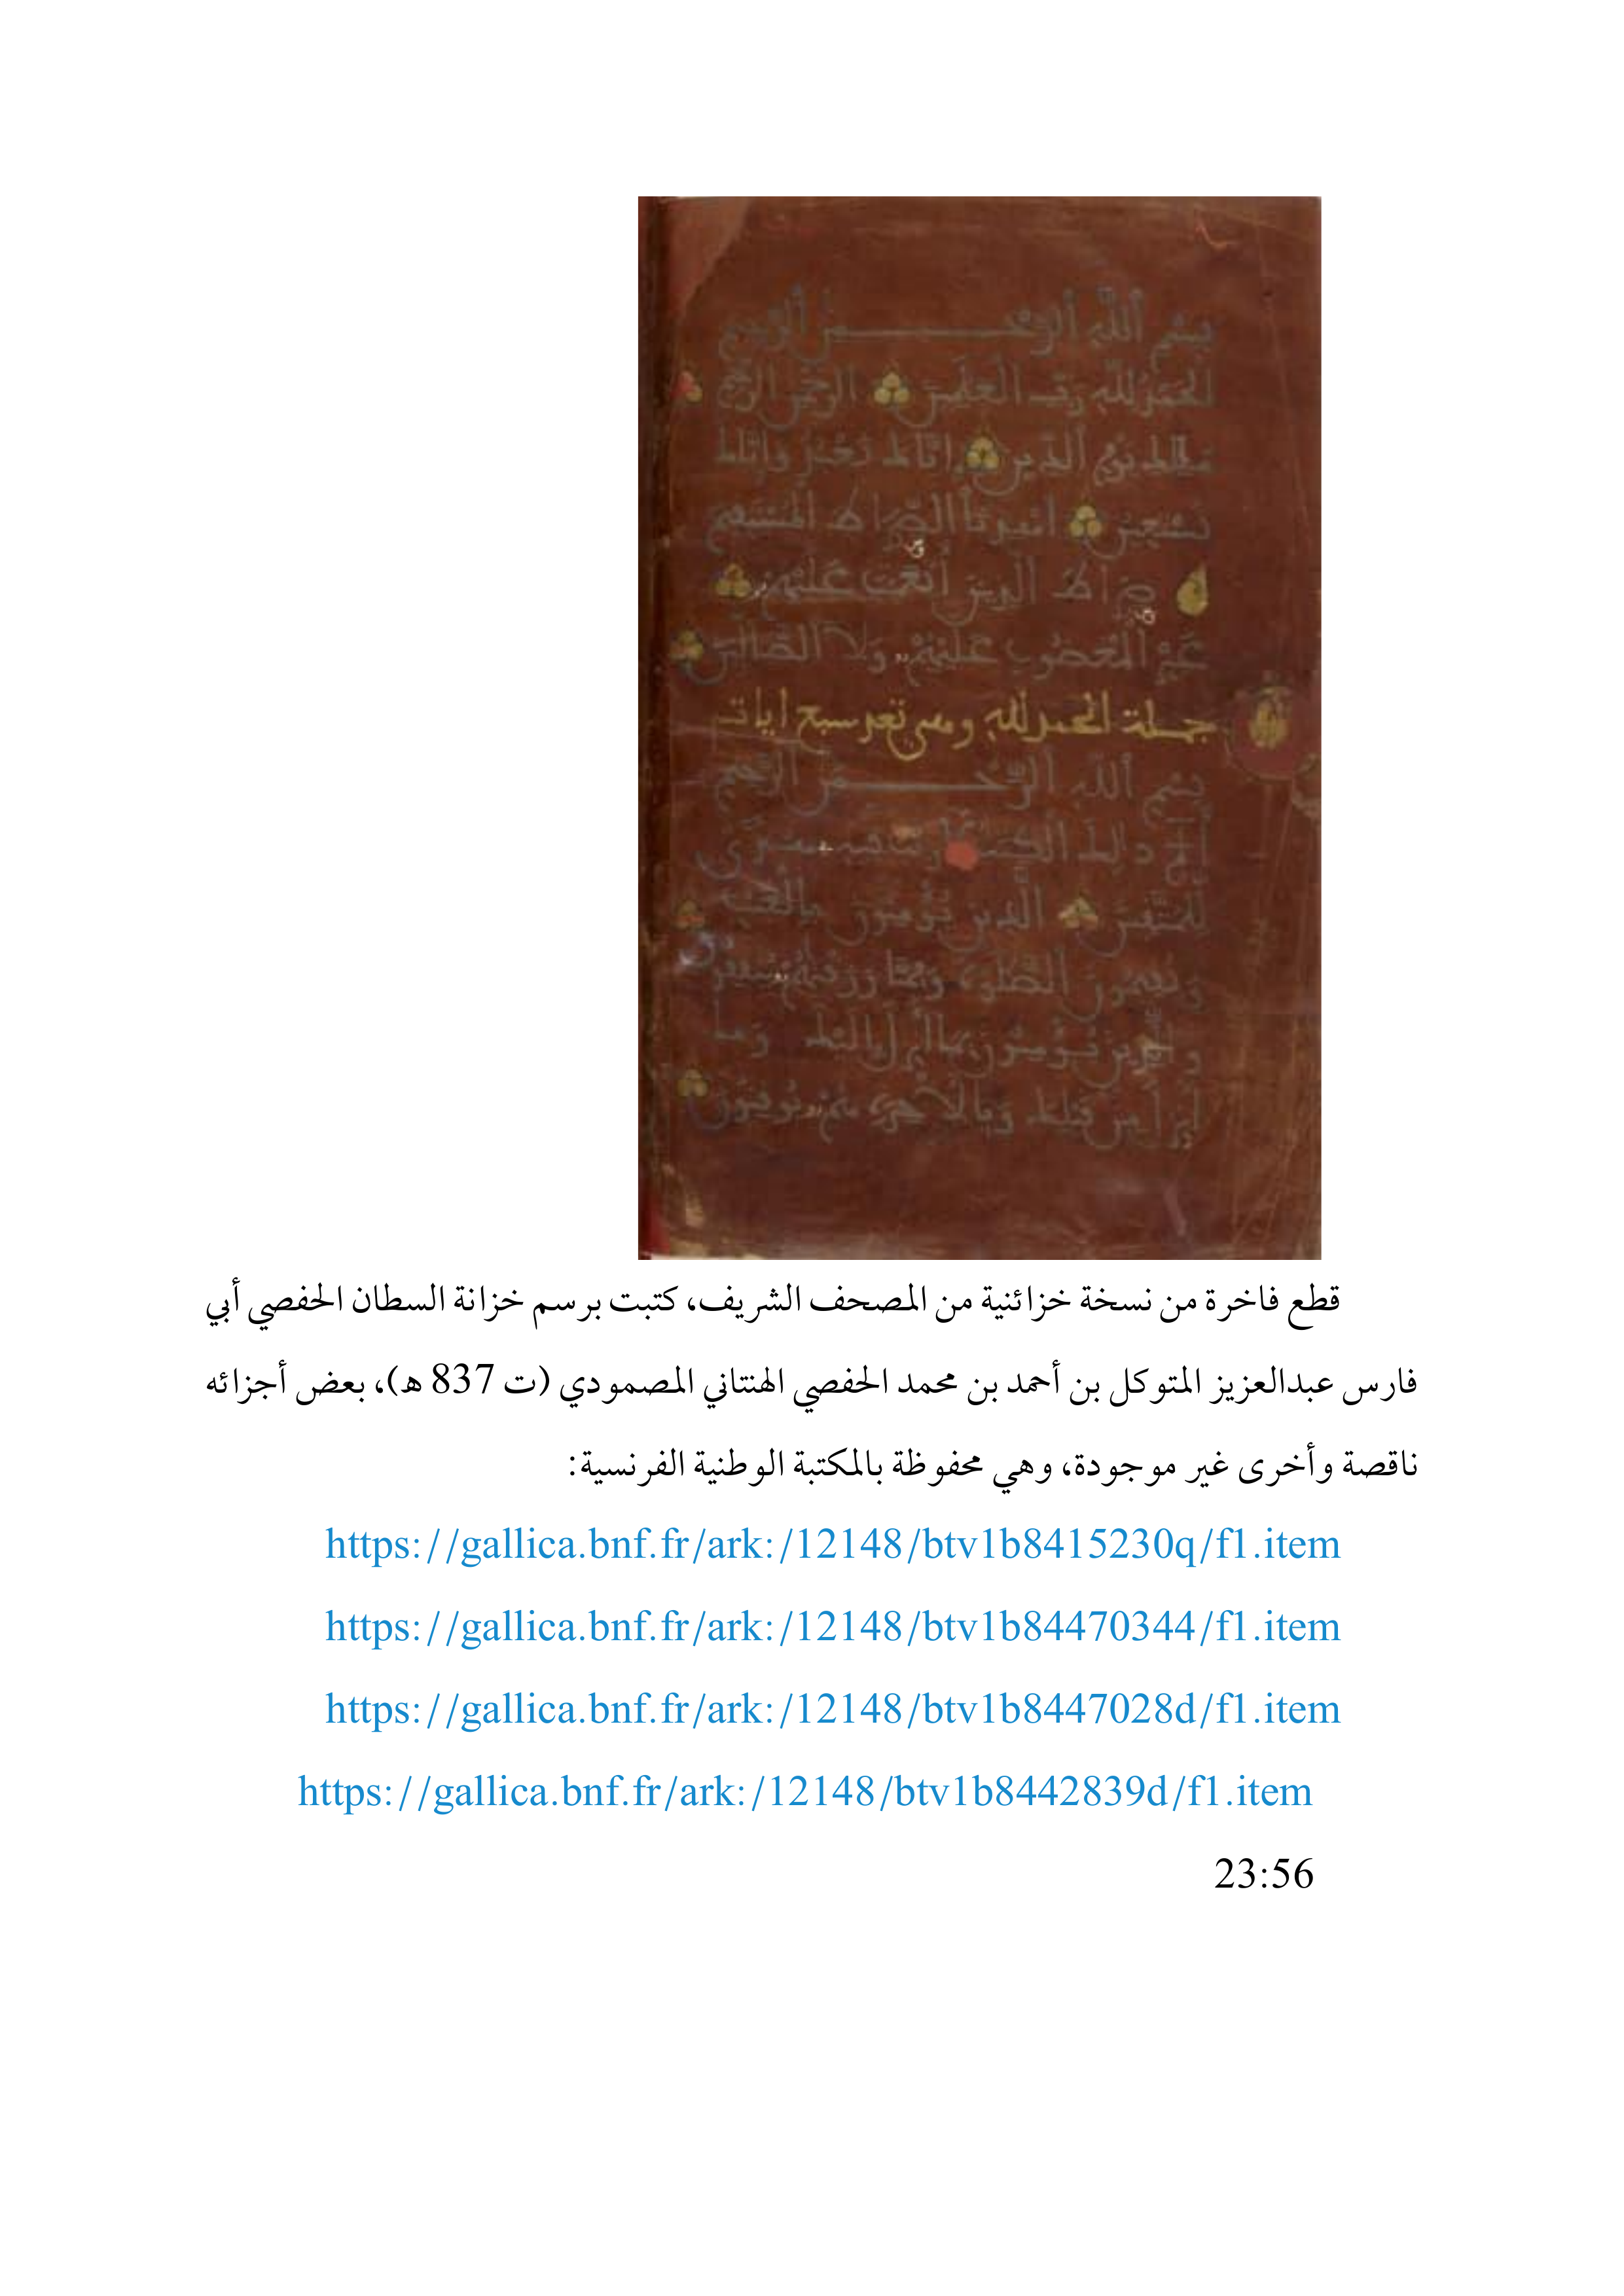 بسم ألله ألرحمن ألرحيم
الحمد لله رب العلمين الرحمن الرحيم
ملك يوم ألدين إياك نعبد وإياك
نستعين اهدنا ألصراط المستقيم
صراط الذين أنعمت عليهم
غير المغضوب عليهم ولا ألضالين
جملة الحمد لله وهي تعد سبع ايات
بسم ألله ألرحمن ألرحيم
ألم ذلك الكتب لا ريب فيه هدى
للمتقين ألذين يؤمنون بالغيب
ويقيمون ألصلوة ومما رزقنهم ينفقون
والذين يؤمنون بما أنزل إليك وما
أنزل من قبلك وبالاخرة هم يوقنون
قطع فاخرة من نسخة خزائنية من المصحف الشريف، كتبت برسم خزانة السطان الحفصي أبي
فارس عبدالعزيز المتوكل بن أحمد بن محمد الحفصي الهنتاني المصمودي (ت 837 ه)، بعض أجزائه
ناقصة وأخرى غير موجودة، وهي محفوظة بالمكتبة الوطنية الفرنسية:
https://gallica.bnf.fr/ark:/12148/btv1b8415230q/f1.item
https://gallica.bnf.fr/ark:/12148/btv1b84470344/f1.item
https://gallica.bnf.fr/ark:/12148/btv1b8447028d/f1.item
https://gallica.bnf.fr/ark:/12148/btv1b8442839d/f1.item
23:56